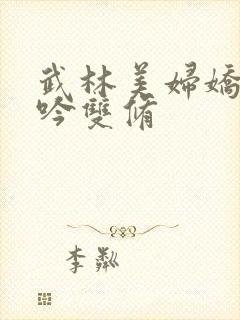 武林美婦嬌
吟雙脩
李粼